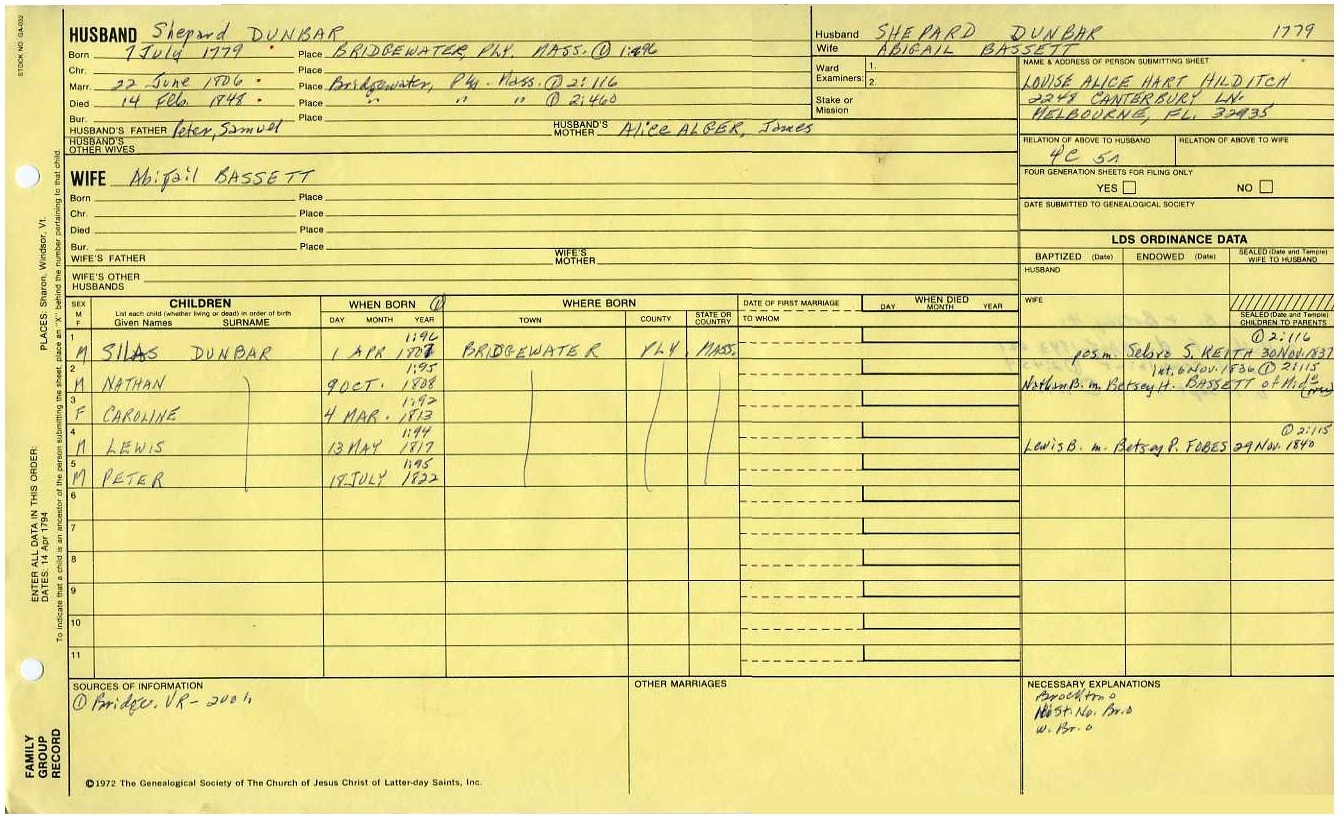 STOCK NO. GA-032
HUSBAND Shepard DUNBAR
Born 7 July 1779 Place BRIDGEWATER, PLY. MASS. ① 1:96
Chr. Place
Marr. 22 June 1806 Place Bridgewater, Ply. Mass. ① 2:116
Died 14 Feb. 1848 Place " " " ① 2:460
Bur. Place
HUSBAND'S FATHER Peter, Samuel HUSBAND'S MOTHER Alice ALGER, James
HUSBAND'S OTHER WIVES
Husband SHEPARD DUNBAR 1779
Wife ABIGAIL BASSETT
Ward Examiners: 1. 2.
Stake or Mission
NAME & ADDRESS OF PERSON SUBMITTING SHEET
LOUISE ALICE HART HILDITCH
2248 CANTERBURY LN.
MELBOURNE, FL. 32935
RELATION OF ABOVE TO HUSBAND RELATION OF ABOVE TO WIFE
4C 5r
FOUR GENERATION SHEETS FOR FILING ONLY
YES NO
DATE SUBMITTED TO GENEALOGICAL SOCIETY
WIFE Abigail BASSETT
Born Place
Chr. Place
Died Place
Bur. Place
WIFE'S FATHER WIFE'S MOTHER
WIFE'S OTHER HUSBANDS
LDS ORDINANCE DATA
BAPTIZED (Date) ENDOWED (Date) SEALED (Date and Temple) WIFE TO HUSBAND
HUSBAND
WIFE
SEALED (Date and Temple) CHILDREN TO PARENTS
SEX M F CHILDREN WHEN BORN ① WHERE BORN DATE OF FIRST MARRIAGE WHEN DIED
List each child (whether living or dead) in order of birth
Given Names SURNAME DAY MONTH YEAR TOWN COUNTY STATE OR COUNTRY TO WHOM DAY MONTH YEAR
1 1:96 ① 2:116
M SILAS DUNBAR 1 APR 1807 BRIDGEWATER PLY. MASS. pos. m. S. KEITH 30 NOV. 1837
2 1:95 Int. 6 Nov. 1836 ① 2:115
M NATHAN 9 OCT. 1808 Nathan B. m. Betsey H. BASSETT of Mid°
3 1:92
F CAROLINE 4 MAR. 1813
4 1:94 ① 2:115
M LEWIS 13 MAY 1817 Lewis B. m. Betsey P. FOBES 29 Nov. 1840
5 1:95
M PETER 18 JULY 1822
6
7
8
9
10
11
SOURCES OF INFORMATION
① Bridge. VR-
OTHER MARRIAGES
NECESSARY EXPLANATIONS
Brockton
No. Br.
W. Br.
©1972 The Genealogical Society of The Church of Jesus Christ of Latter-day Saints, Inc.
FAMILY GROUP RECORD
ENTER ALL DATA IN THIS ORDER:
DATES: 14 Apr 1794
PLACES: Sharon, Windsor, Vt.
To indicate that a child is an ancestor of the person submitting the sheet, place an "X" behind the number pertaining to that child.